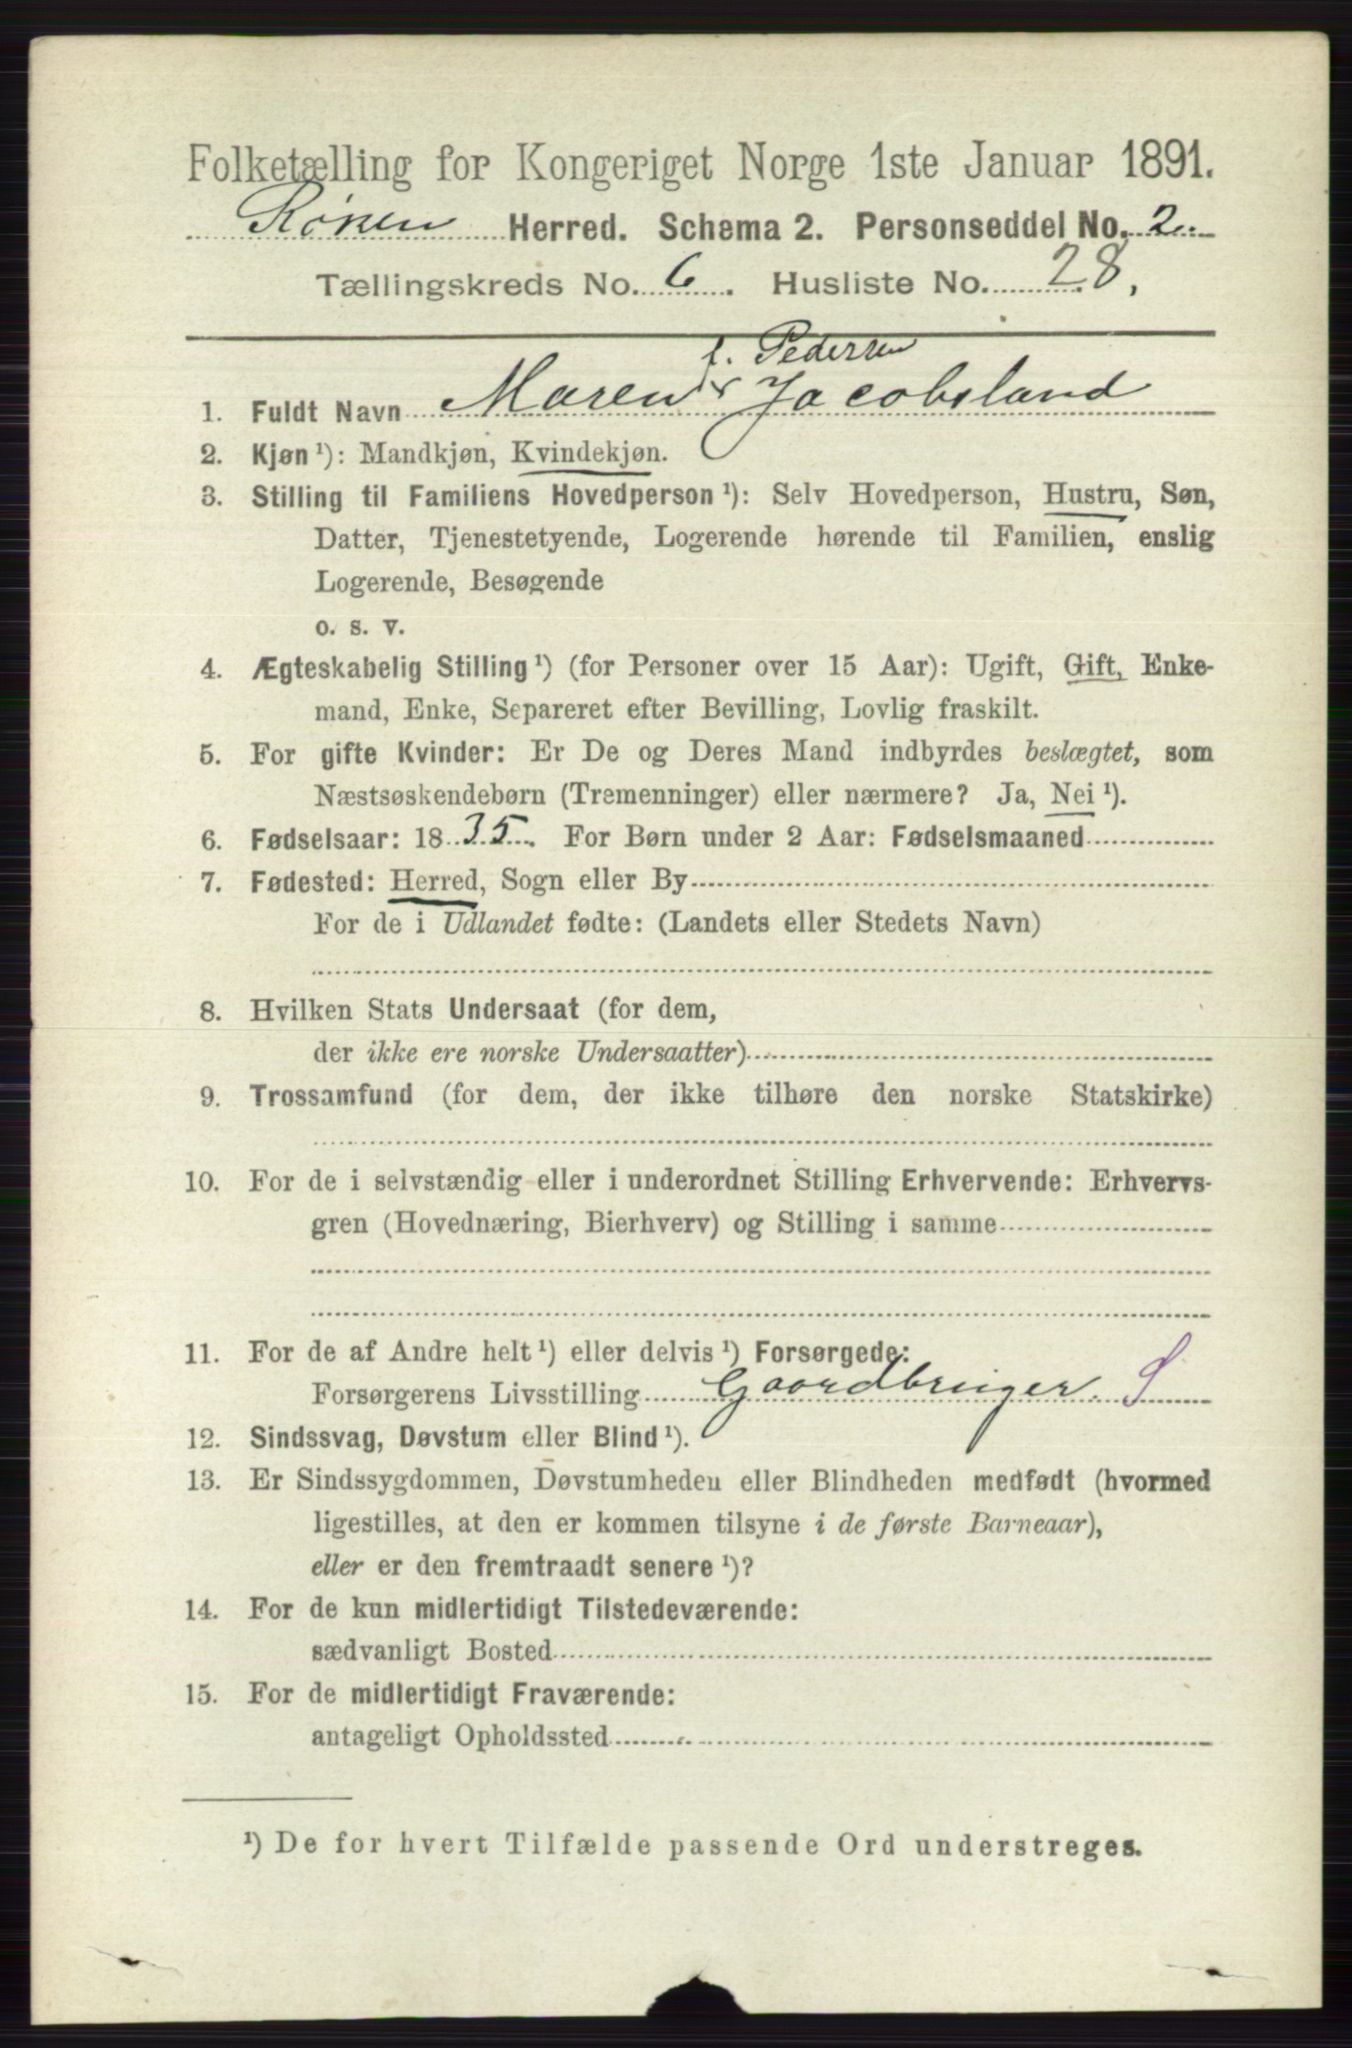 Folketælling for Kongeriget Norge 1ste Januar 1891.
Røken Herred. Schema 2. Personseddel No. 2.
Tællingskreds No. 6. Husliste No. 28.
f. Pedersen
1. Fuldt Navn Maren Jacobsland
2. Kjøn ¹): Mandkjøn, Kvindekjøn.
3. Stilling til Familiens Hovedperson ¹): Selv Hovedperson, Hustru, Søn,
Datter, Tjenestetyende, Logerende hørende til Familien, enslig
Logerende, Besøgende
o. s. v.
4. Ægteskabelig Stilling ¹) (for Personer over 15 Aar): Ugift, Gift, Enke-
mand, Enke, Separeret efter Bevilling, Lovlig fraskilt.
5. For gifte Kvinder: Er De og Deres Mand indbyrdes beslægtet, som
Næstsøskendebørn (Tremenninger) eller nærmere? Ja, Nei ¹).
6. Fødselsaar: 1835. For Børn under 2 Aar: Fødselsmaaned
7. Fødested: Herred, Sogn eller By
For de i Udlandet fødte: (Landets eller Stedets Navn)
8. Hvilken Stats Undersaat (for dem,
der ikke ere norske Undersaatter)
9. Trossamfund (for dem, der ikke tilhøre den norske Statskirke)
10. For de i selvstændig eller i underordnet Stilling Erhvervende: Erhvervs-
gren (Hovednæring, Bierhverv) og Stilling i samme
11. For de af Andre helt ¹) eller delvis ¹) Forsørgede:
Forsørgerens Livsstilling Gaardbruger. S
12. Sindssvag, Døvstum eller Blind ¹).
13. Er Sindssygdommen, Døvstumheden eller Blindheden medfødt (hvormed
ligestilles, at den er kommen tilsyne i de første Barneaar),
eller er den fremtraadt senere ¹)?
14. For de kun midlertidigt Tilstedeværende:
sædvanligt Bosted
15. For de midlertidigt Fraværende:
antageligt Opholdssted
¹) De for hvert Tilfælde passende Ord understreges.